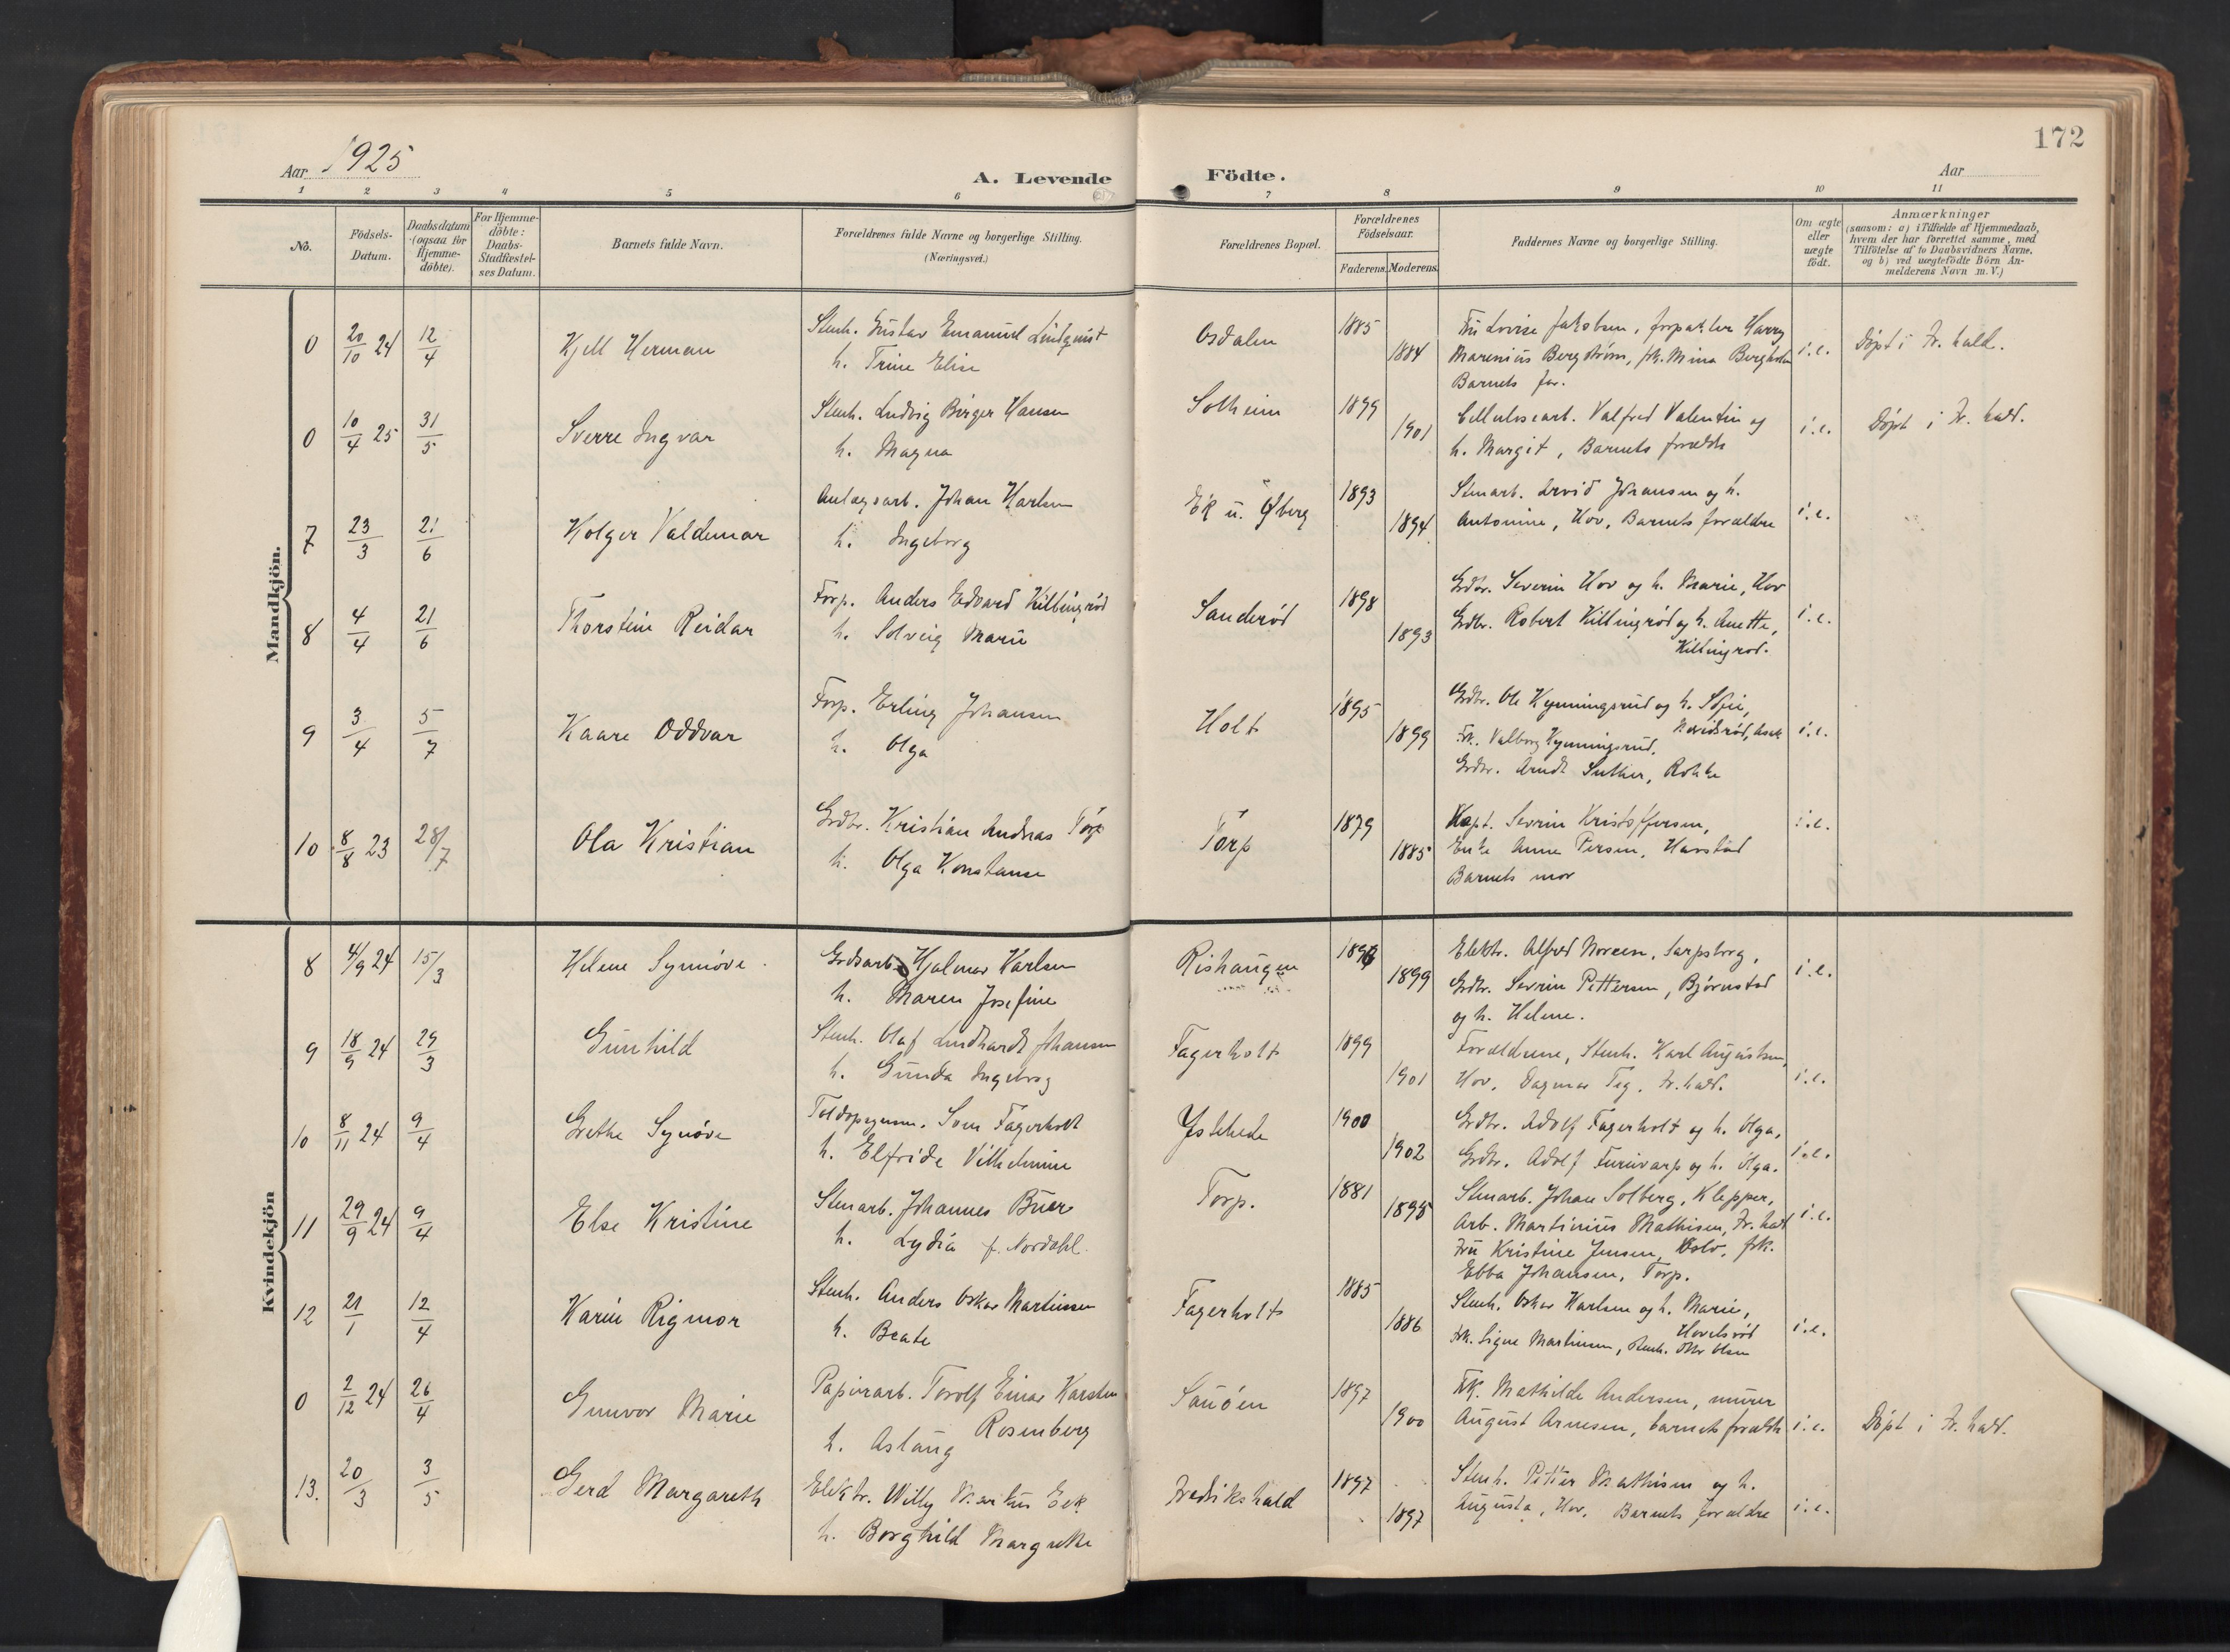 172
Aar 1925
A. Levende Födte.
Aar
1 2 3 4 5 6 7 8 9 10 11
No.
Födsels-Datum.
Daabsdatum (ogsaa for Hjemme-döbte).
For Hjemme-döbte: Daabs-Stadfæstel-ses Datum.
Barnets fulde Navn.
Forældrenes fulde Navne og borgerlige Stilling.
(Næringsvei.)
Forældrenes Bopæl.
Forældrenes Födselsaar.
Faderens. Moderens.
Faddernes Navne og borgerlige Stilling.
Om ægte eller uægte födt.
Anmærkninger
(saasom: a) i Tilfælde af Hjemmedaab,
hvem der har forrettet samme, med
Tilföielse af to Daabsvidners Navne.
og b) ved uægtefödte Börn An-
melderens Navn m. V.)
Mandkjön.
0 20/10 24 12/4 Kjell Herman
Stenh. Gustav Emanuel Lindquist
h. Trine Elise
Osdalen 1885 1884
Fru Lovise Jakobsen, forpakter Harry
Marenius Bergstrøm, frk. Mina
Barnets far.
i.e. Døpt i Fr.hald.
0 10/4 25 31/5 Sverre Ingvar
Stenh. Ludvig Birger Hansen
h. Magna
Solheim 1899 1901
Cellulosearb. Valfred Valentin og
h. Margit, Barnets forældre
i.e. Døpt i Fr.hald.
7 23/3 21/6 Holger Valdemar
Anlægsarb. Johan Karlsen
h. Ingeborg
Ek u. Øberg 1893 1894
Stenarb. Arvid Johansen og h.
Antonine, Hov, Barnets forældre
i.e.
8 4/4 21/6 Thorstein Reidar
Forp. Anders Edvard Killingrød
h. Solveig Marie
Sanderød 1898 1893
Grdbr. Severin Hov og h. Marie, Hov
Grdbr. Robert Killingrød og h. Anette,
Killingrød.
i.e.
9 3/4 5/7 Kaare Oddvar
Forp. Erling Johansen
h. Olga
Holt 1895 1899
Grdbr. Ole Kynningsrud og h. Sofie,
Asak
Frk. Valborg Kynningsrud,
Grdbr. Arndt Suther, Rokke
i.e.
10 8/8 23 28/7 Ola Kristian
Grdbr. Kristian Andreas Torp
h. Olga Konstanse
Torp 1879 1885
Kapt. Severin Kristoffersen,
Enke Anne Persen, Harstad
Barnets mor
i.e.
Kvindekjön
8 4/9 24 15/3 Helene Synnøve
Grdsarb. Hjalmar Karlsen
h. Maren Josefine
Rishaugen 1896 1899
Elektr. Alfred Noreen, Sarpsborg,
Grdbr. Severin Pettersen, Bjørnstad
og h. Helene.
i.e.
9 18/9 24 29/3 Gunhild
Stenh. Olaf Lindhardt Johansen
h. Gunda Ingeborg
Fagerholt 1899 1901
Forældrene, Stenh. Karl Augustsen,
Hov, Dagmar Teg, Fr.hald.
i.e.
10 8/11 24 9/4 Grethe Synøve
Toldopsynsm. Sven Fagerholdt
h. Elfride Vilhelmine
Ystehede 1900 1902
Grdbr. Adolf Fagerholt og h. Olga,
Grdbr. Adolf Furuvarp og h. Olga.
i.e.
11 29/9 24 9/4 Else Kristine
Stenarb. Johannes Buer
h. Lydia f. Nordahl.
Torp. 1881 1895
Stenarb. Johan Solberg, Klepper,
Arb. Martinius Mathisen, Fr.hald
Fru Kristine Jensen, Oslo, frk.
Ebba Johansen, Torp.
i.e.
12 21/1 12/4 Karin Rigmor
Stenh. Anders Oskar Martinsen
h. Beate
Fagerholt 1885 1886
Stenh. Oskar Karlsen og h. Marie,
Hovelsrød
Frk. Signe Martinsen, Stenh. Olsen
i.e.
0 2/12 24 26/4 Gunvor Marie
Papirarb. Torolf Einar Karsten
Rosenberg
h. Aslaug
Sauøen 1897 1900
Frk. Mathilde Andersen, murer
August Arnesen, barnets forældre
i.e. Døpt i Fr.hald.
13. 20/3 3/5 Gerd Margareth
Elektr. Willy Martin Eek
h. Borghild Margrethe
Fredrikshald 1897 1897
Stenh. Petter Mathisen og h.
Augusta, Hov, Barnets forældre
i.e.